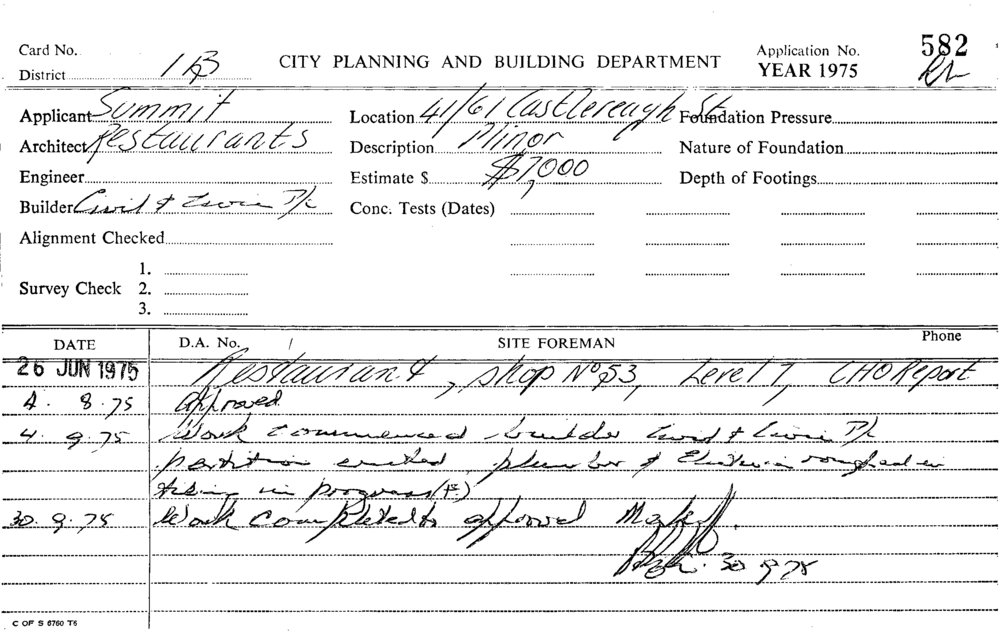 Card No. Application No. 582
District 1B CITY PLANNING AND BUILDING DEPARTMENT YEAR 1975
Applicant Summit Location 41/61 Castlereagh St. Foundation Pressure
Architect Restaurants Description Minor Nature of Foundation
Engineer Estimate $ $7,000 Depth of Footings
Builder Civil & Civic P/L Conc. Tests (Dates)
Alignment Checked
1.
Survey Check 2.
3.
DATE D.A. No. / SITE FOREMAN Phone
26 JUN 1975 Restaurant, shop No 53, Level 7, CHO Report
4. 8. 75 approved
4. 9. 75 Work commenced builder Civil & Civic P/L
partition erected, plumber & roughed in
tiling in progress
30. 9. 75 Work completed approved
30 9 75
C OF S 6760 T6